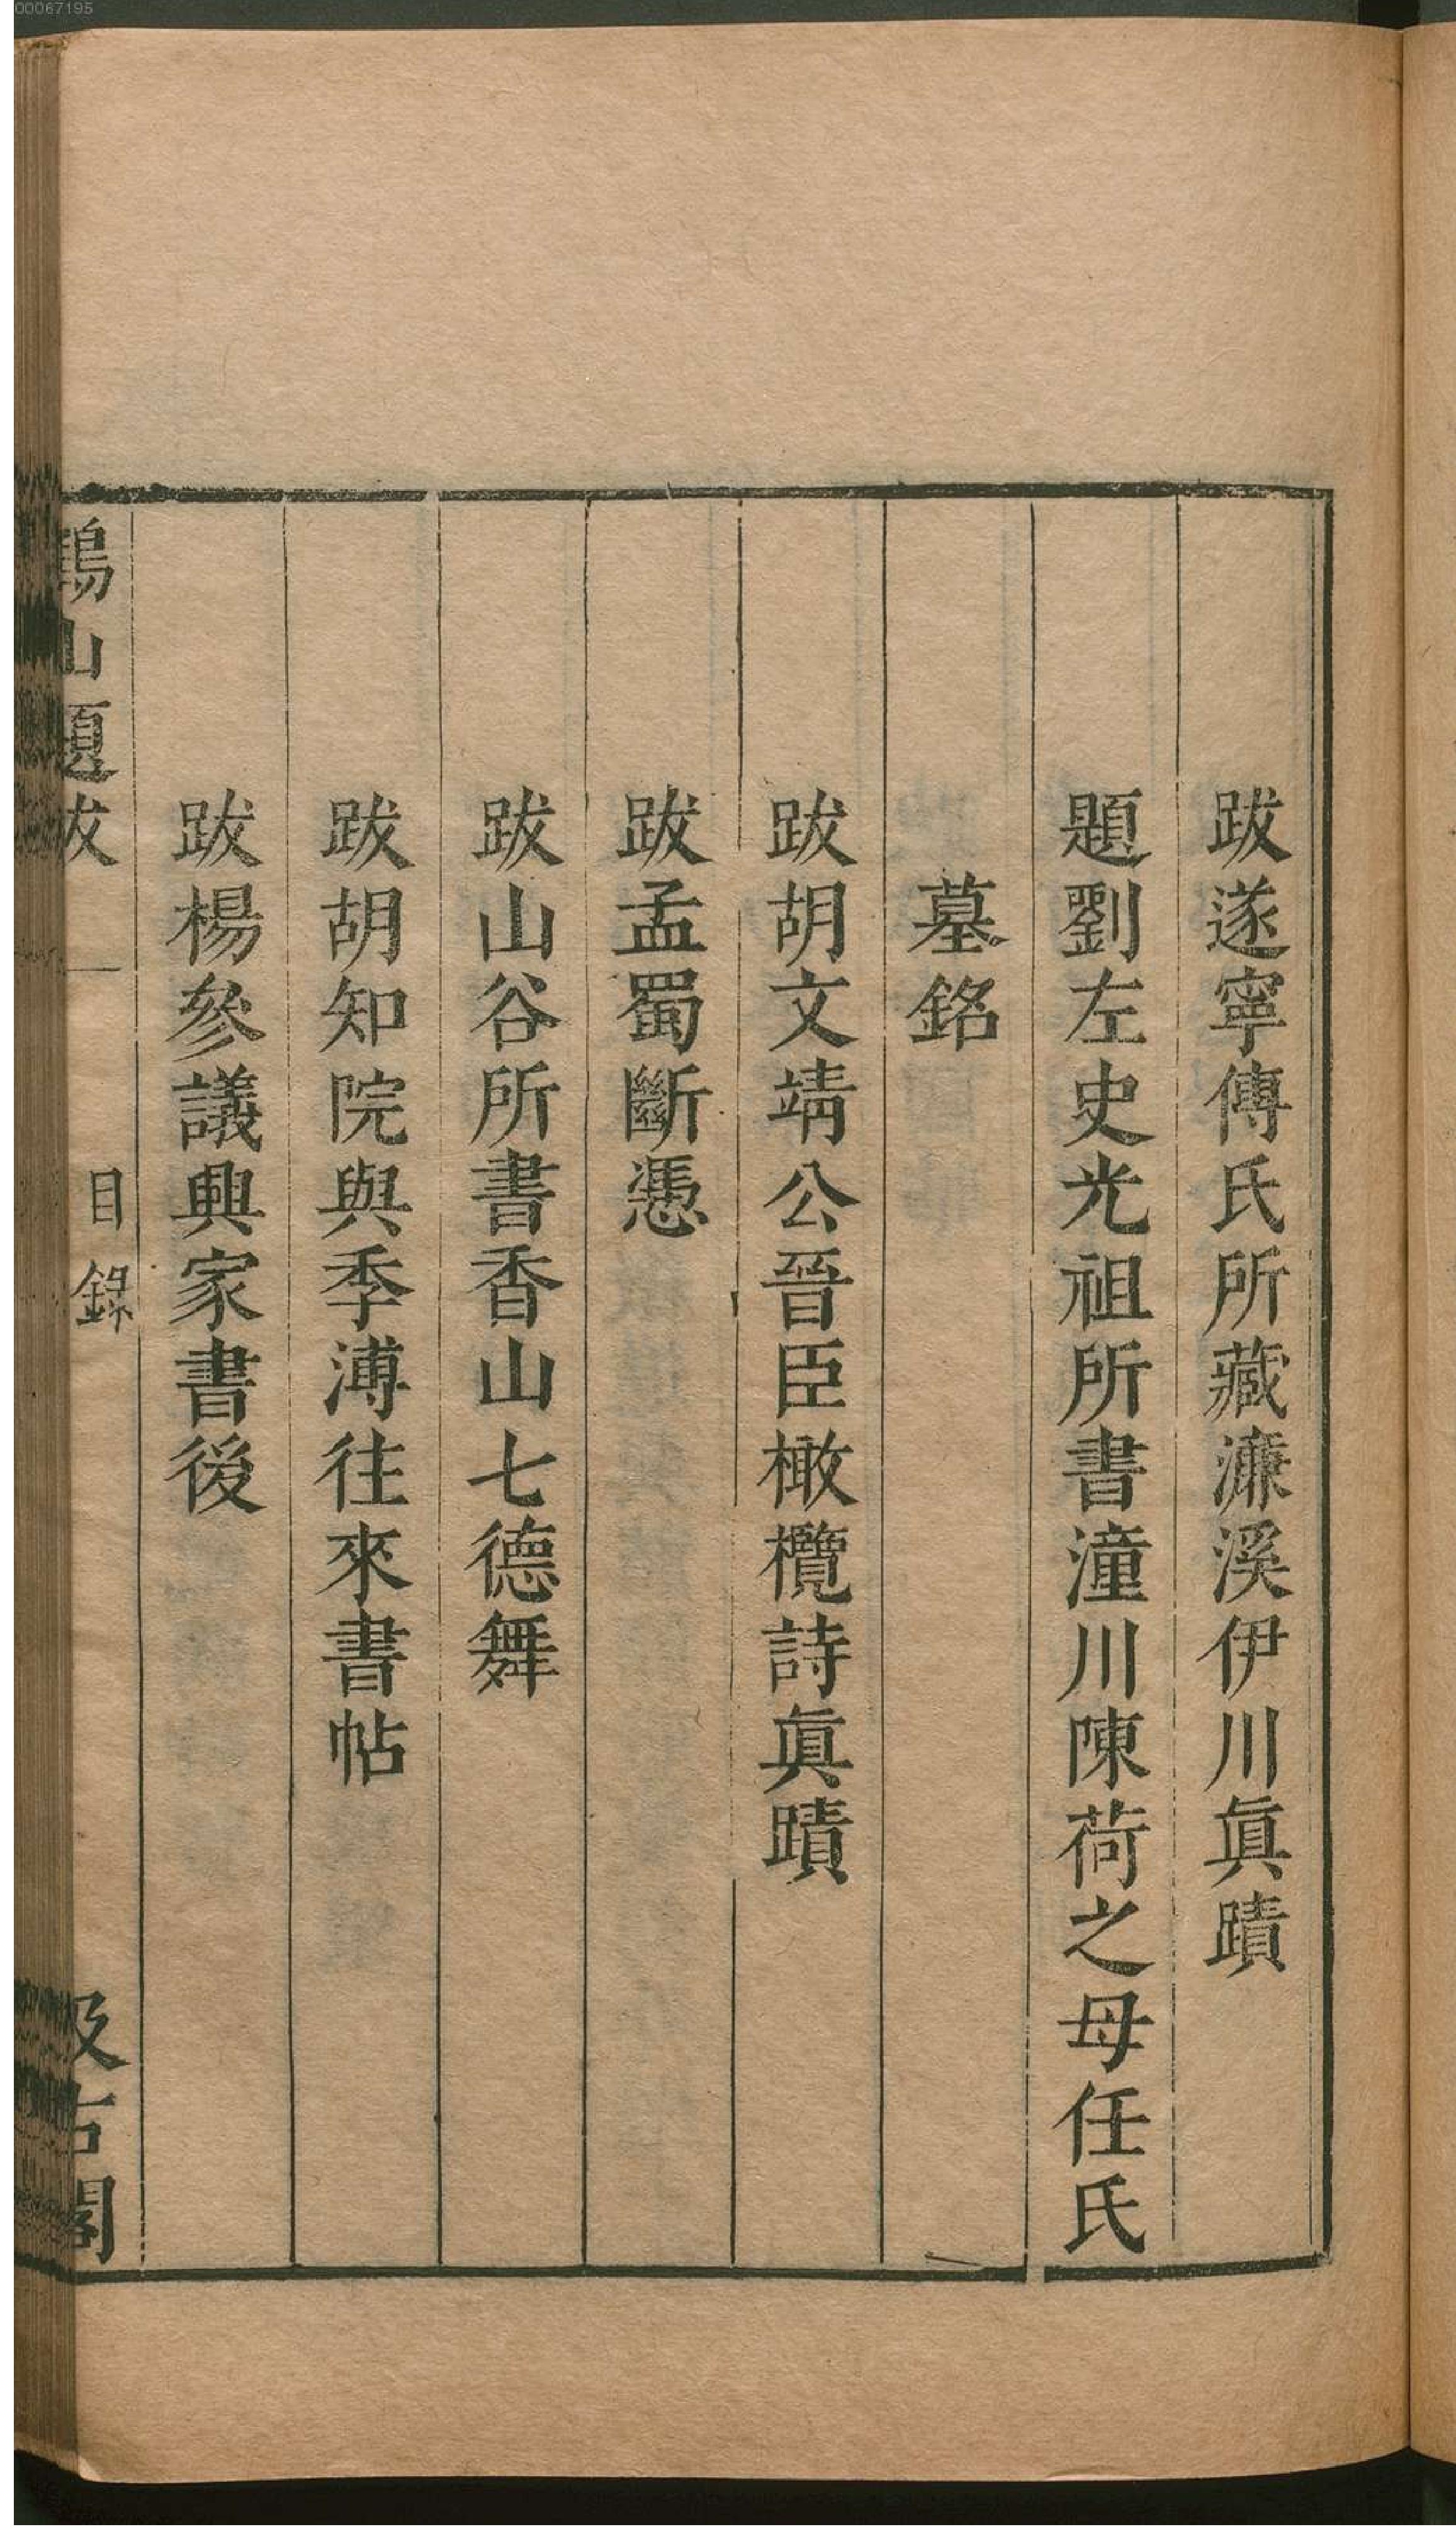 00067195
跋遂寧傅氏所藏濂溪伊川眞蹟
題劉左史光祖所書潼川陳荷之母任氏
墓銘
跋胡文靖公晉臣橄欖詩眞蹟
跋孟蜀斷憑
跋山谷所書香山七德舞
跋胡知院與季溥往來書帖
跋楊參議興家書後
鶴山題跋 一 目錄 汲古閣